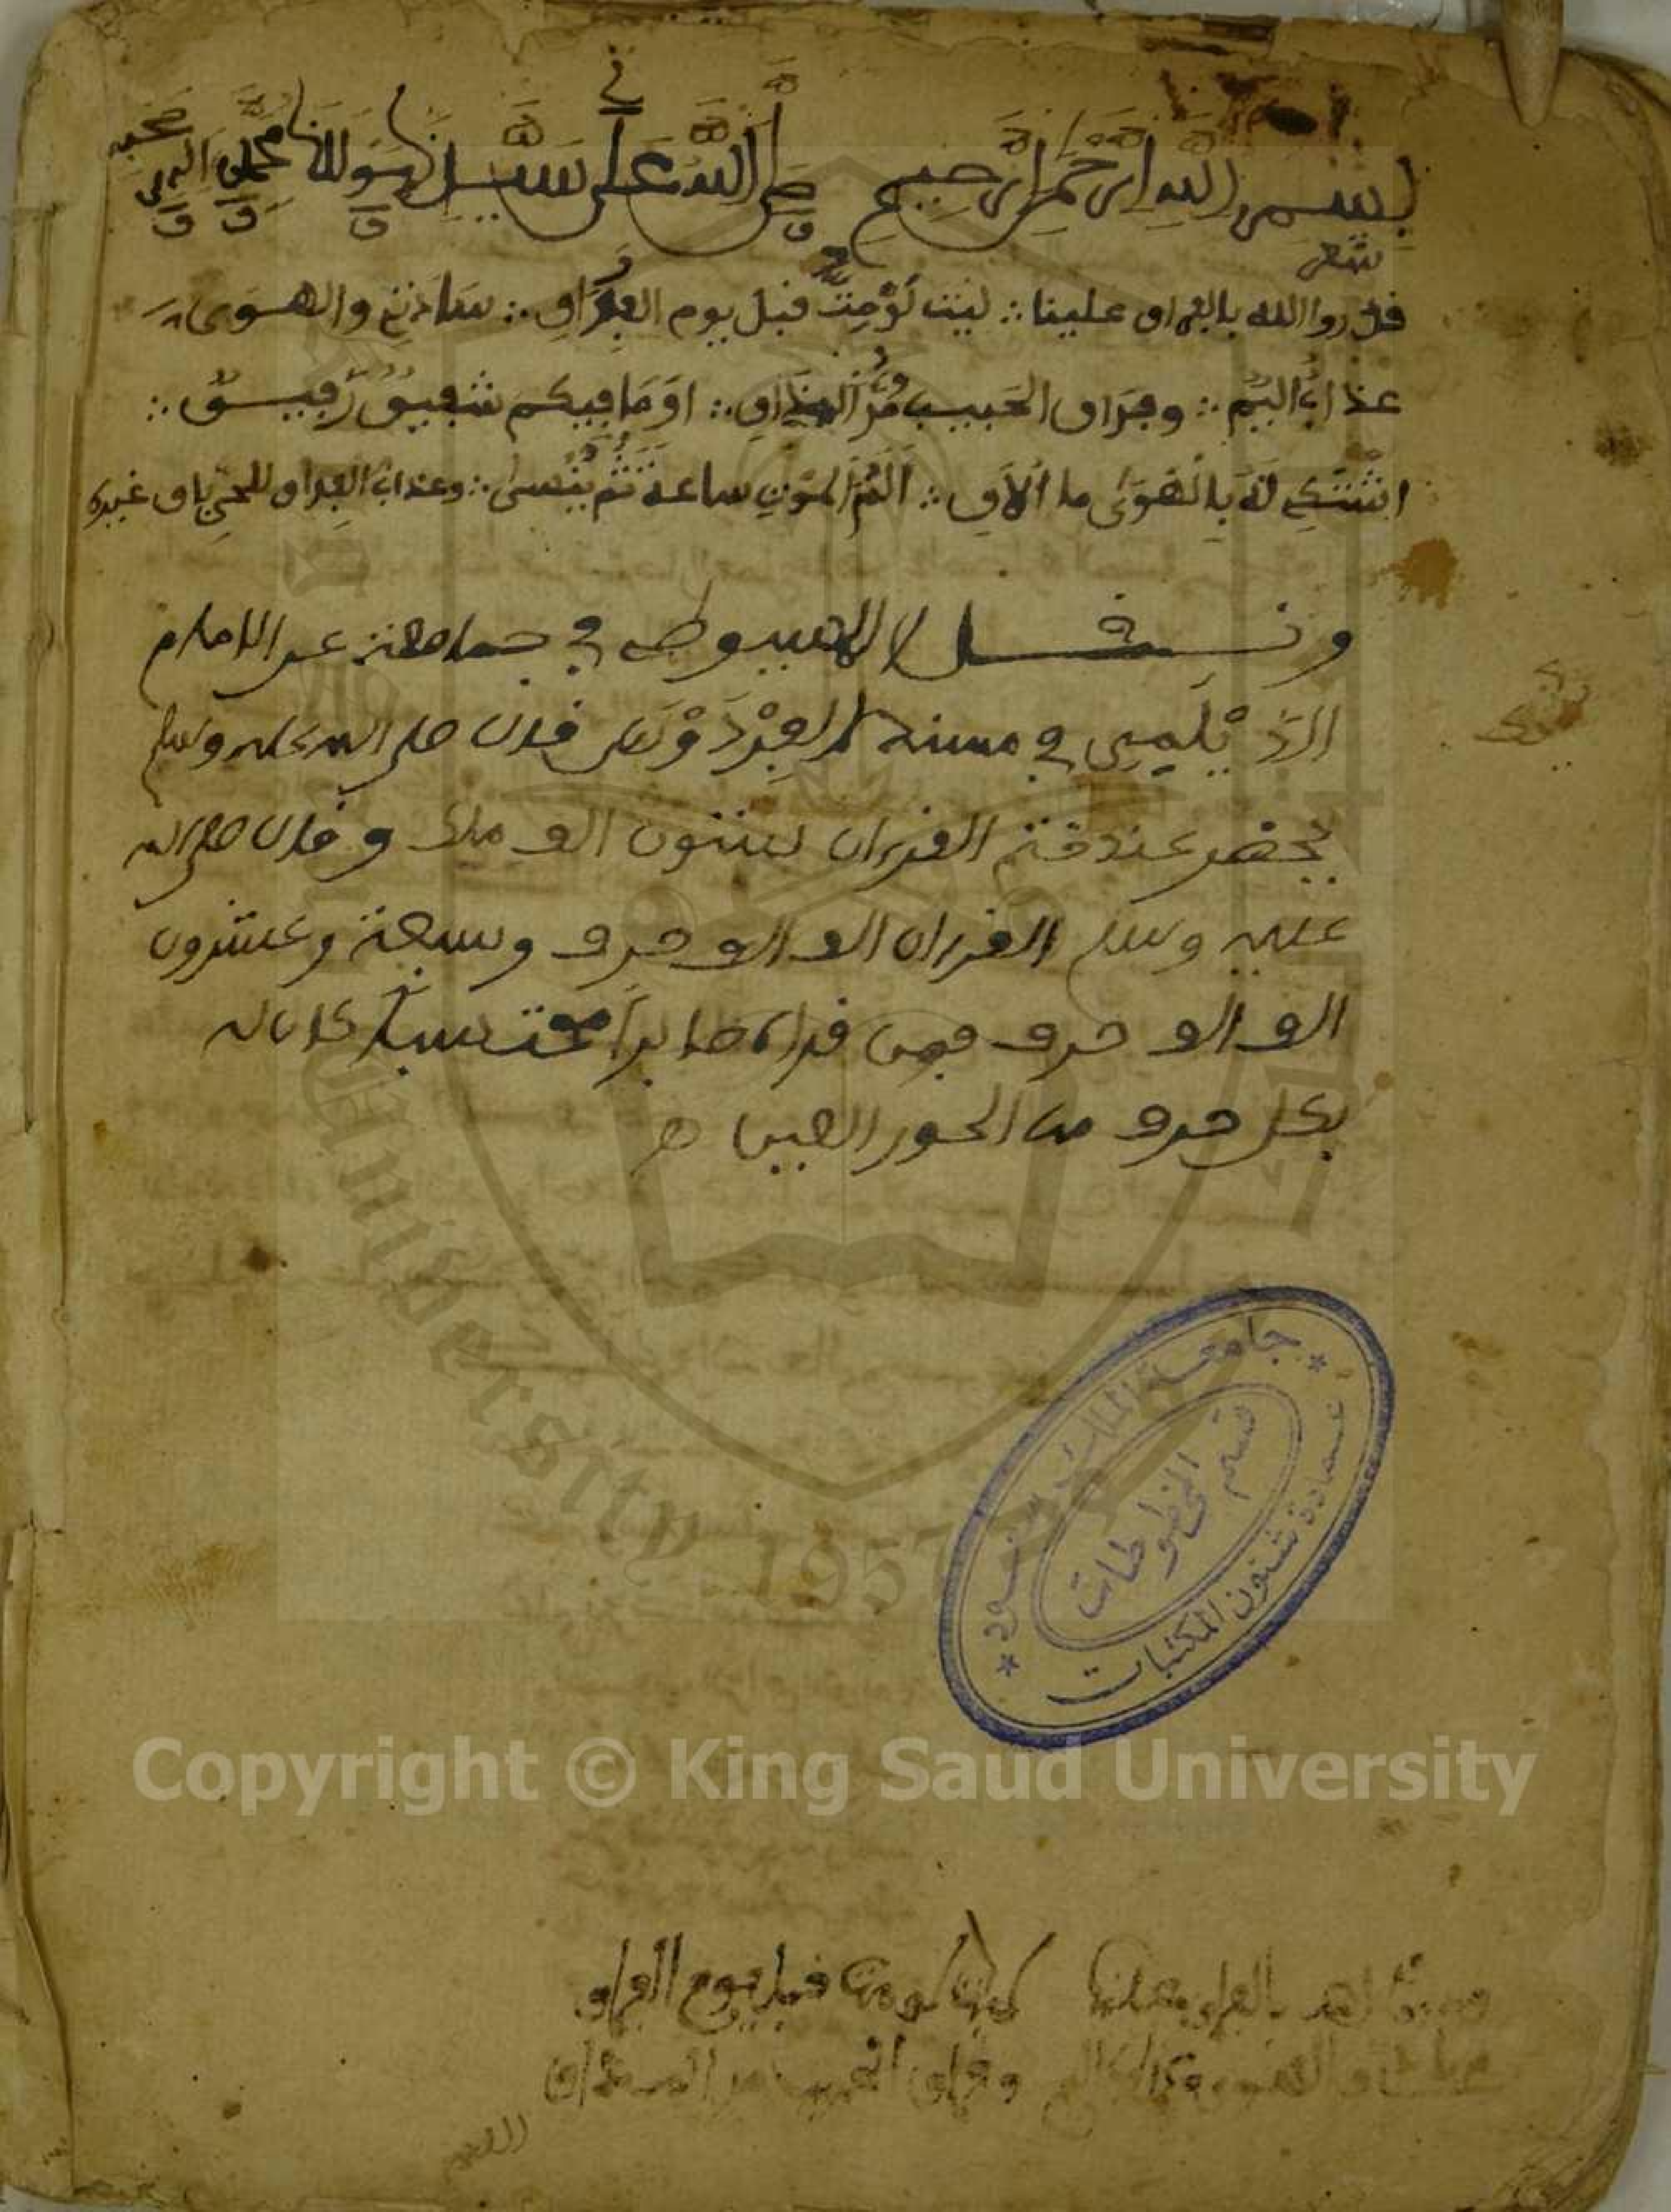 بسم الله الرحمن الرحيم صلى الله على سيدنا ومولانا محمد وءاله وصحبه
شعر
قدر الله بالفراق علينا ∴ ليت لو مت قبل يوم الفراق ∴ ساءدتي والهوى
عذاب اليم ∴ وفراق الحبيب مر المذاق ∴ او ما فيكم شفيق رفيق ∴
اشتكي له بالهوى ما الاق ∴ الم الموت ساعة ثم ينسى ∴ وعذاب الفراق للحي باق غيره
ونقل السيوطي في جامعه عن الامام
الديلمي في مسند الفردوس قال صلى الله عليه وسلم
يحضر عند ختم القرءان ستون الف ملك وقال صلى الله
عليه وسلم القرءان الف الف حرف وسبعة وعشرون
الف الف حرف فمن قراه صابرا محتسبا كان له
بكل حرف من الحور العين
جامعة الملك سعود
قسم المخطوطات
عمادة شئون المكتبات
Copyright © King Saud University
University 1957
بالفراق علينا ليت لو مت قبل يوم الفراق
وفراق الحبيب مر المذاق